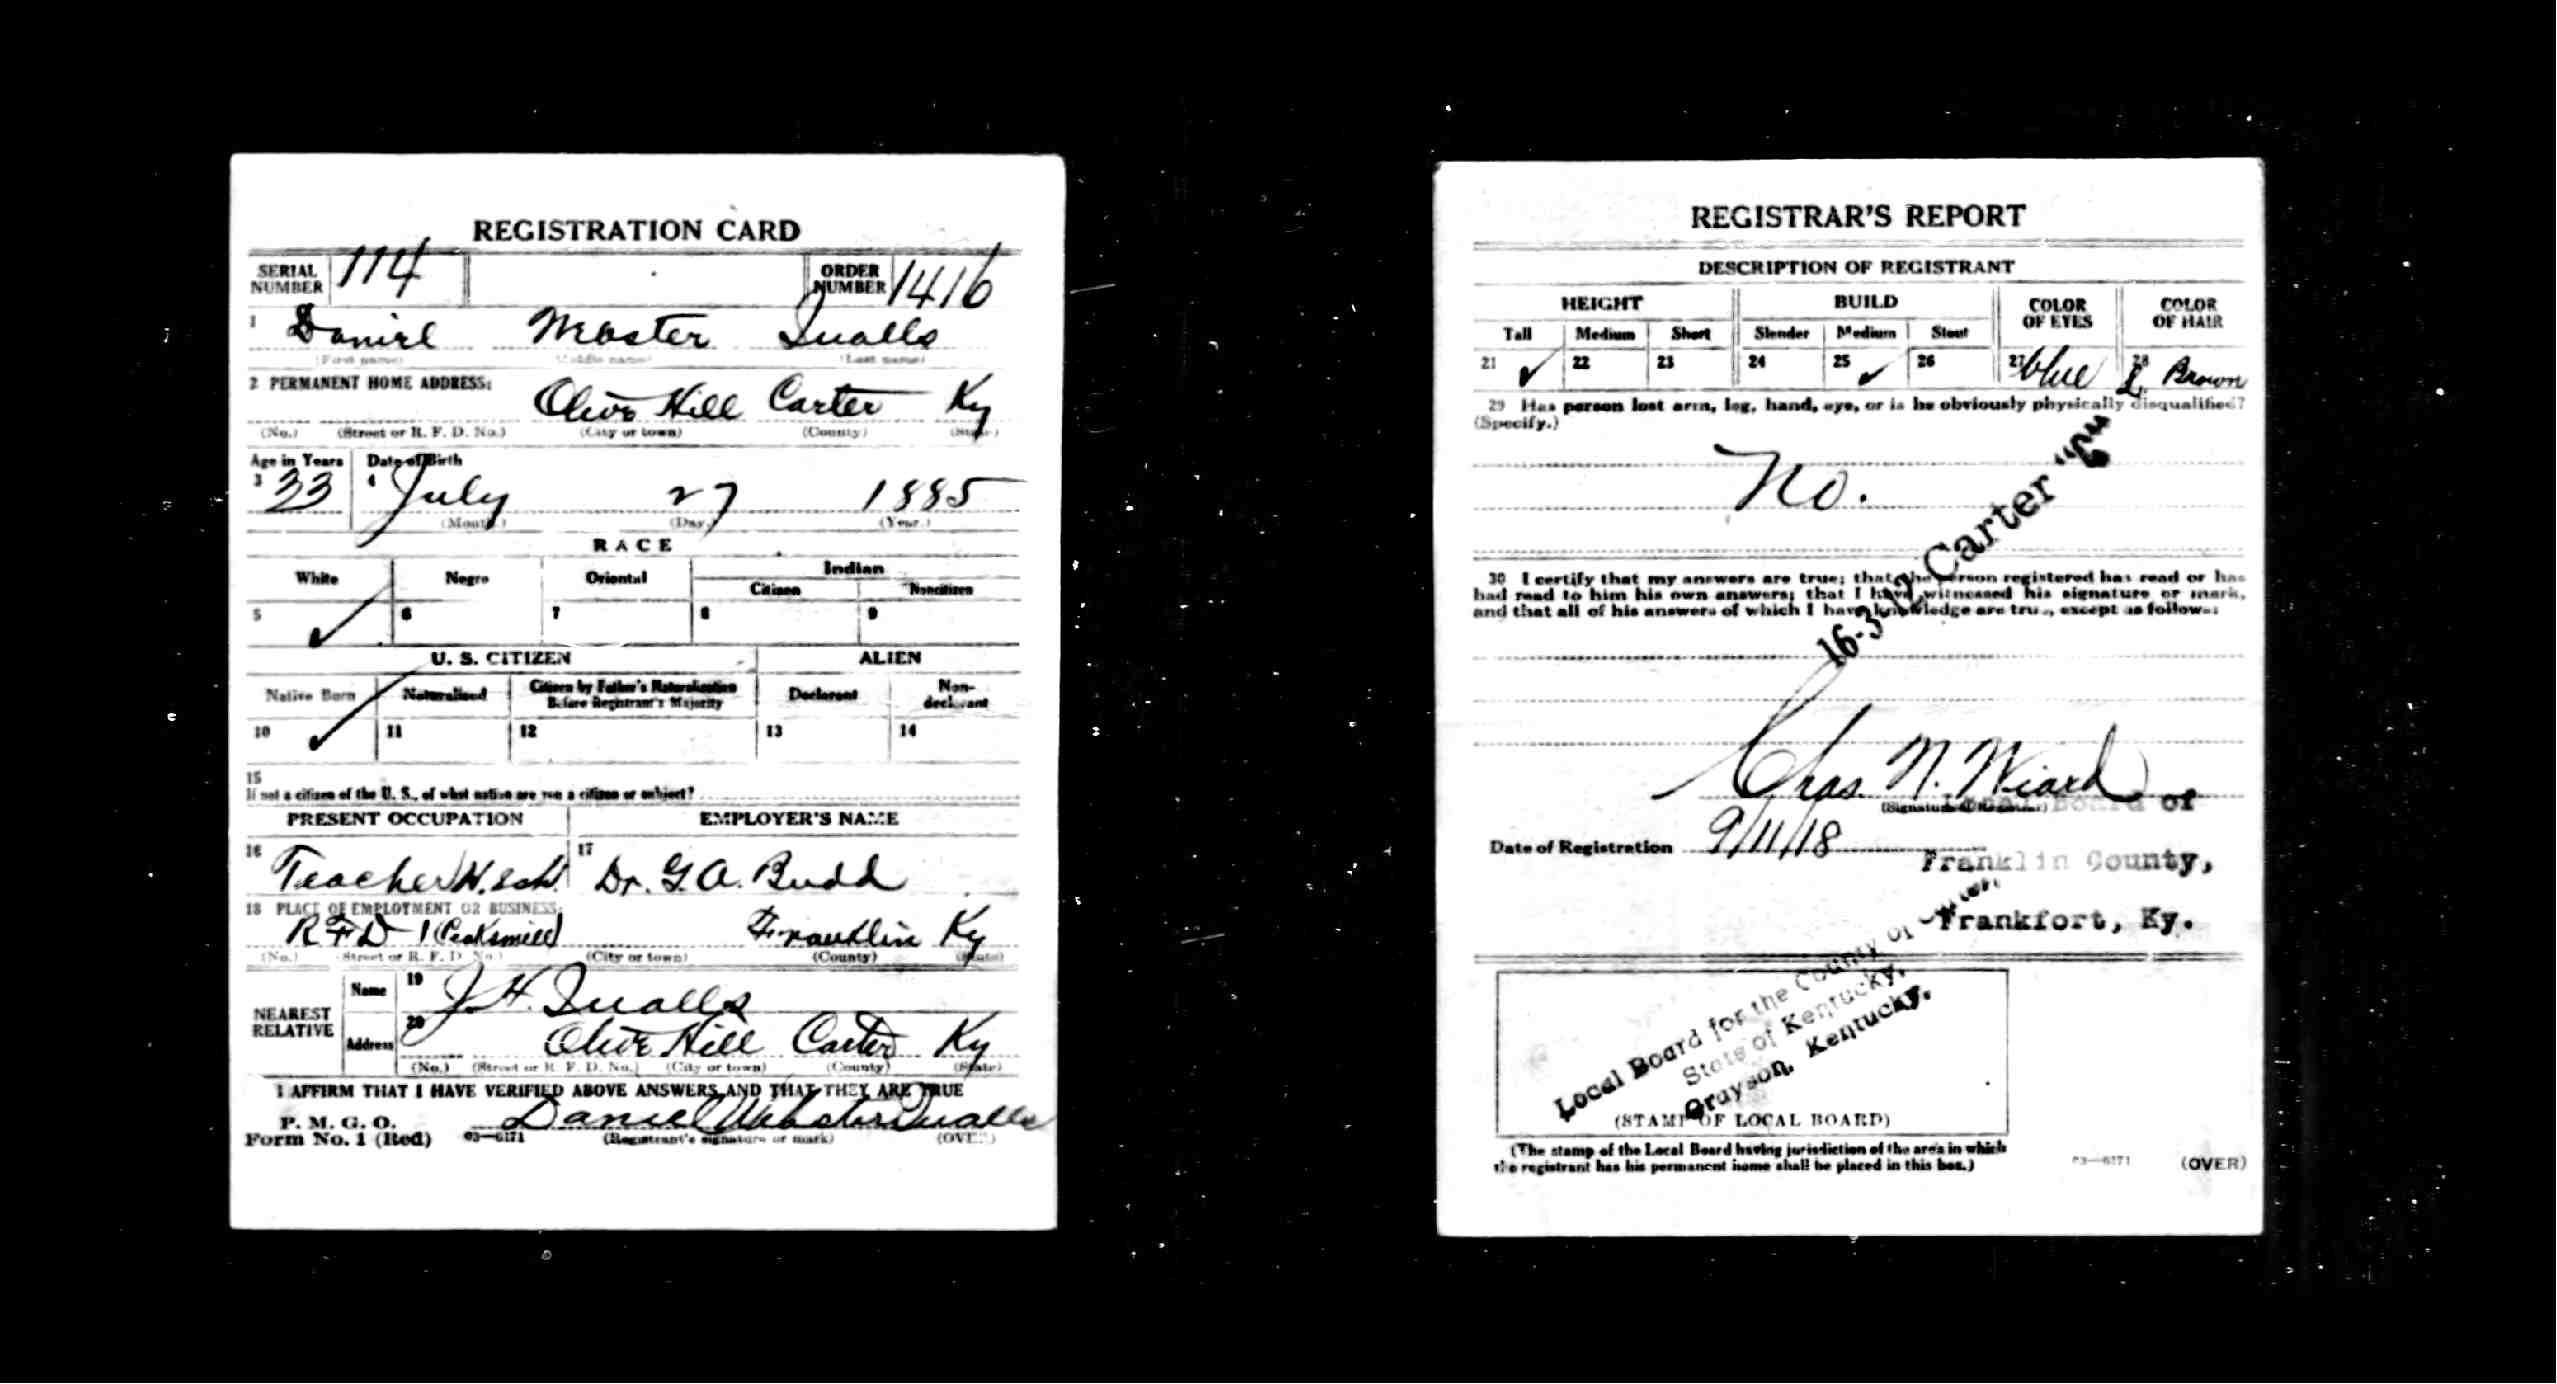 REGISTRATION CARD
SERIAL NUMBER 114 ORDER NUMBER 1416
1 Daniel Master Qualls
(First name) (Middle name) (Last name)
2 PERMANENT HOME ADDRESS:
Olive Hill Carter Ky
(No.) (Street or R. F. D. No.) (City or town) (County) (State)
Age in Years Date of Birth
3 33 4 July 27 1885
(Month.) (Day.) (Year.)
RACE
White Negro Oriental Indian
Citizen Noncitizen
5 ✓ 6 7 8 9
U. S. CITIZEN ALIEN
Native Born Naturalized Citizen by Father's Naturalization Before Registrant's Majority Declarant Non-declarant
10 ✓ 11 12 13 14
15
If not a citizen of the U. S., of what nation are you a citizen or subject?
PRESENT OCCUPATION EMPLOYER'S NAME
16 Teacher H. sch. 17 Dr. G. A. Budd
18 PLACE OF EMPLOYMENT OR BUSINESS:
R F D 1 (Peaksmill) Franklin Ky
(No.) (Street or R. F. D. No.) (City or town) (County) (State)
NEAREST RELATIVE Name 19 J. H. Qualls
Address 20 Olive Hill Carter Ky
(No.) (Street or R. F. D. No.) (City or town) (County) (State)
I AFFIRM THAT I HAVE VERIFIED ABOVE ANSWERS AND THAT THEY ARE TRUE
P. M. G. O.
Form No. 1 (Red) 03—6171 Daniel Webster Qualls
(Registrant's signature or mark) (OVER)
REGISTRAR'S REPORT
DESCRIPTION OF REGISTRANT
HEIGHT BUILD COLOR OF EYES COLOR OF HAIR
Tall Medium Short Slender Medium Stout
21 ✓ 22 23 24 25 ✓ 26 27 blue 28 L. Brown
29 Has person lost arm, leg, hand, eye, or is he obviously physically disqualified?
(Specify.)
No.
16-3-12 Carter "G"
30 I certify that my answers are true; that the person registered has read or has
had read to him his own answers; that I have witnessed his signature or mark,
and that all of his answers of which I have knowledge are true, except as follows:
Chas. N. Wiard
(Signature of Registrar)
Local Board of
Date of Registration 9/11/18
Franklin County,
Frankfort, Ky.
Local Board for the County of Carter
State of Kentucky,
Grayson, Kentucky.
(STAMP OF LOCAL BOARD)
(The stamp of the Local Board having jurisdiction of the area in which
the registrant has his permanent home shall be placed in this box.)
03—6171 (OVER)